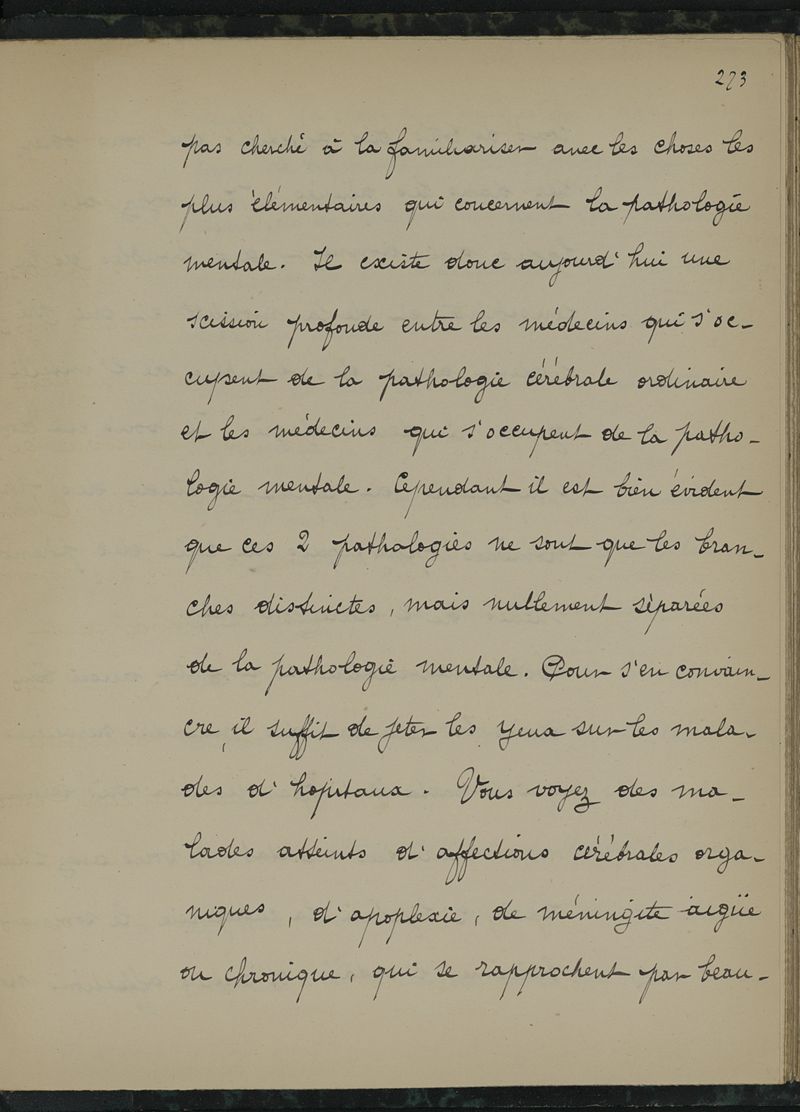 273
pas cherché à la familiariser avec les choses les
plus élémentaires qui concernent la pathologie
mentale. Il existe donc aujourd'hui une
scission profonde entre les médecins qui s'oc-
cupent de la pathologie cérébrale ordinaire
et les médecins qui s'occupent de la patho-
logie mentale. Cependant il est bien évident
que ces 2 pathologies ne sont que les bran-
ches distinctes, mais nullement séparées
de la pathologie mentale. Pour s'en convain-
cre, il suffit de jeter les yeux sur les mala-
des d'hopitaux. Vous voyez des ma-
lades atteints d'affections cérébrales orga-
niques, d'apoplexie, de méningite aigüe
ou chronique, qui se rapprochent par beau-